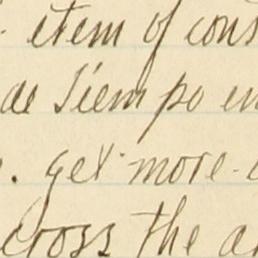 item of cons
de Siempo en
. get more.
cross the a